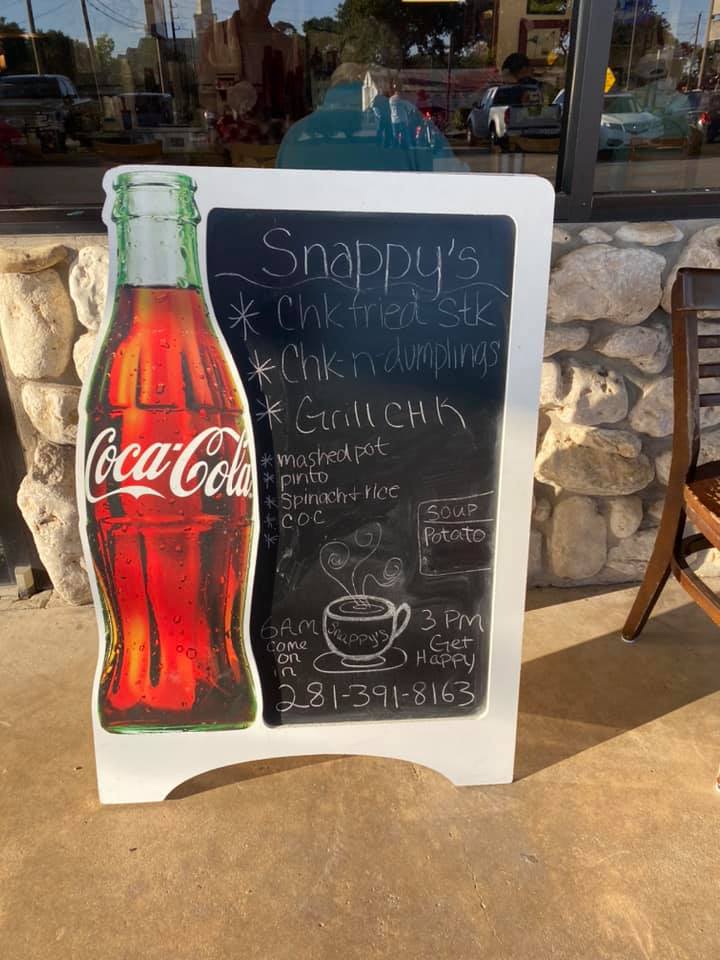 Coca-Cola
Snappy's
* Chk fried stk
* Chk-n-dumplings
* Grill CHK
* mashed pot
* pinto
* Spinach + rice
* COC
*
SOUP
Potato
6AM
come
on
in
Snappy's
3 PM
Get
Happy
281-391-8163